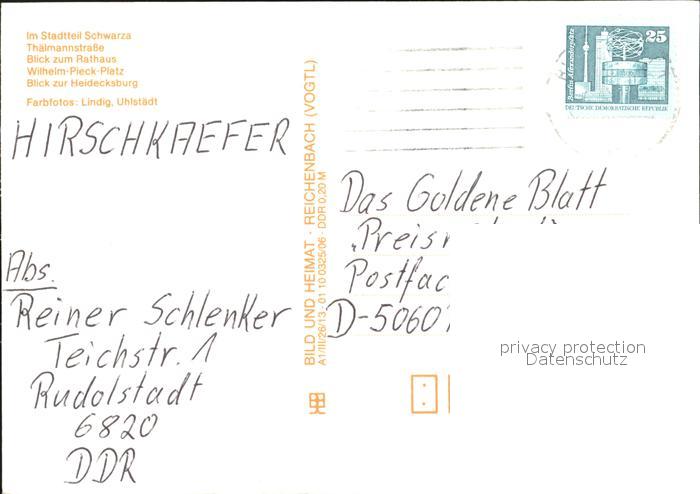 Im Stadtteil Schwarza
Thälmannstraße
Blick zum Rathaus
Wilhelm-Pieck-Platz
Blick zur Heidecksburg
Farbfotos: Lindig, Uhlstädt
HIRSCHKAEFER
Abs.
Reiner Schlenker
Teichstr. 1
Rudolstadt
6820
DDR
BILD UND HEIMAT · REICHENBACH (VOGTL)
A1/III/26/13 · 01 10 0325/06 · DDR 0,20 M
25
Berlin, Alexanderplatz
DEUTSCHE DEMOKRATISCHE REPUBLIK
Das Goldene Blatt
Postfac
D-5060
privacy protection
Datenschutz